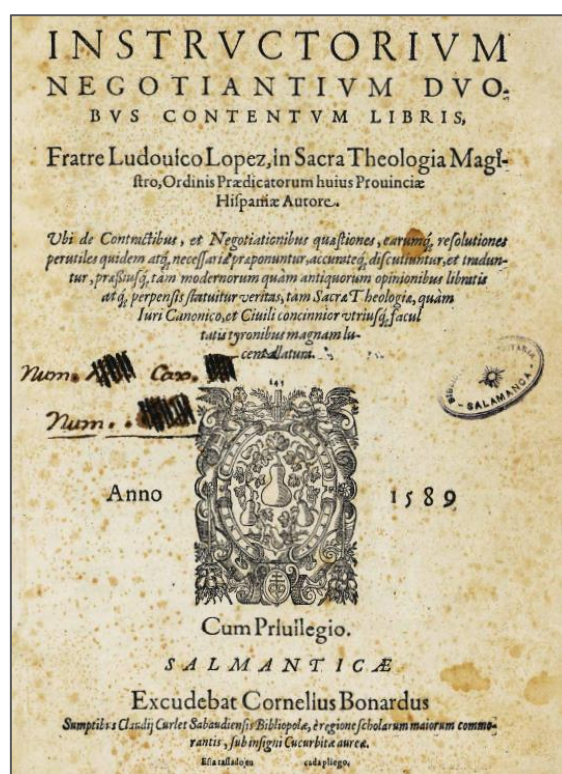 INSTRVCTORIVM
NEGOTIANTIVM DVO-
BVS CONTENTVM LIBRIS,
Fratre Ludouico Lopez, in Sacra Theologia Magi-
stro, Ordinis Prædicatorum huius Prouinciæ
Hispaniæ Autore.
Vbi de Contractibus, et Negotiationibus quæstiones, earumq́, resolutiones
perutiles quidem atq́, necessariæ præponuntur, accurateq́, discutiuntur, et tradun-
tur, præssiusq́, tàm modernorum quàm antiquorum opinionibus libratis
atq́, perpensis statuitur veritas, tam Sacræ Theologiæ, quàm
Iuri Canonico, et Ciuili concinnior vtriusq́, facul
tatis tyronibus magnam lu-
cem allatura.
Num. Cax.
Num.
SALAMANCA
Anno 1589
Cum Priuilegio.
SALMANTICÆ
Excudebat Cornelius Bonardus
Sumptibus Claudij Curlet Sabaudiensis Bibliopolæ, è regione scholarum maiorum commo-
rantis, sub insigni Cucurbitæ aureæ.
Esta tassado en cada pliego.